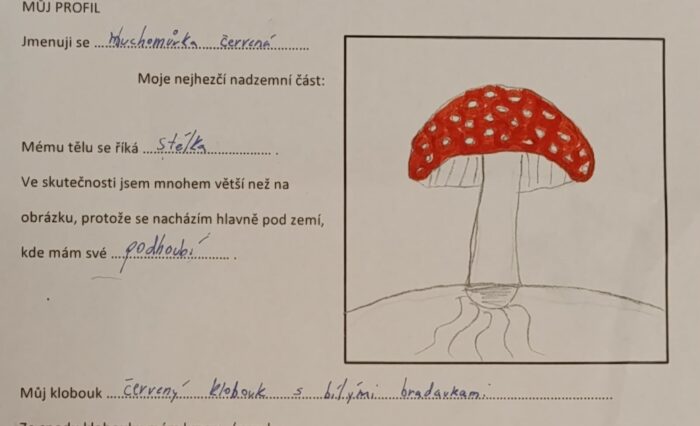 MŮJ PROFIL
Jmenuji se Muchomůrka červená
Moje nejhezčí nadzemní část:
Mému tělu se říká stélka .
Ve skutečnosti jsem mnohem větší než na
obrázku, protože se nacházím hlavně pod zemí,
kde mám své podhoubí .
Můj klobouk červený klobouk s bílými bradavkami